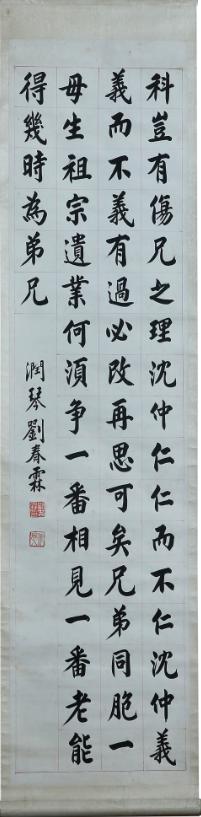 科豈有傷兄之理沈仲仁仁而不仁沈仲義
義而不義有過必改再思可矣兄弟同胞一
母生祖宗遺業何須爭一番相見一番老能
得幾時為弟兄
潤琴劉春霖